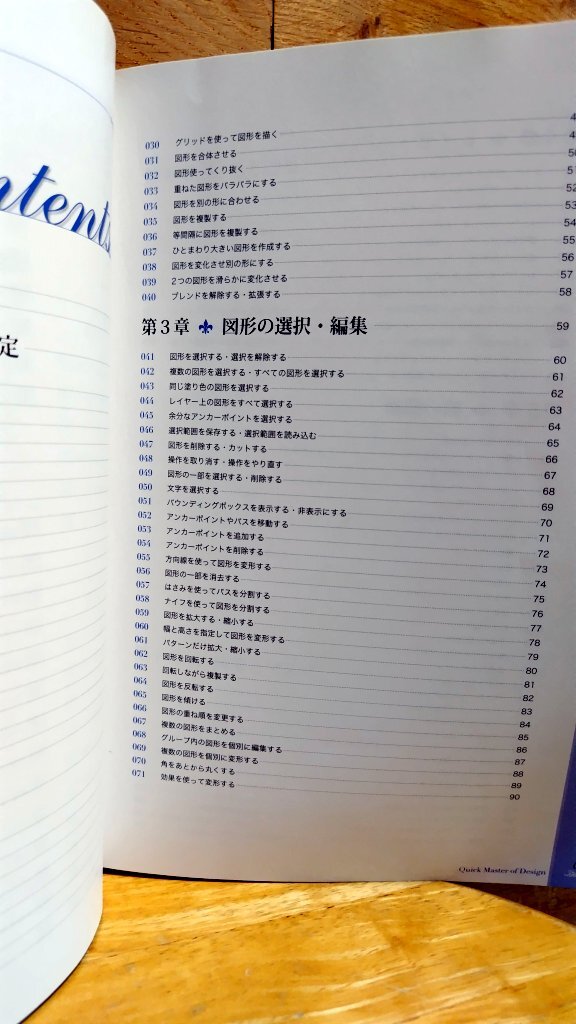 ntents
定
030 グリッドを使って図形を描く
031 図形を合体させる
032 図形使ってくり抜く
033 重ねた図形をバラバラにする 51
034 図形を別の形に合わせる 52
035 図形を複製する 53
036 等間隔に図形を複製する 54
037 ひとまわり大きい図形を作成する 55
038 図形を変化させ別の形にする 56
039 2つの図形を滑らかに変化させる 57
040 ブレンドを解除する・拡張する 58
第3章 図形の選択・編集 59
041 図形を選択する・選択を解除する 60
042 複数の図形を選択する・すべての図形を選択する 61
043 同じ塗り色の図形を選択する 62
044 レイヤー上の図形をすべて選択する 63
045 余分なアンカーポイントを選択する 64
046 選択範囲を保存する・選択範囲を読み込む 65
047 図形を削除する・カットする 66
048 操作を取り消す・操作をやり直す 67
049 図形の一部を選択する・削除する 68
050 文字を選択する 69
051 バウンディングボックスを表示する・非表示にする 70
052 アンカーポイントやパスを移動する 71
053 アンカーポイントを追加する 72
054 アンカーポイントを削除する 73
055 方向線を使って図形を変形する 74
056 図形の一部を消去する 75
057 はさみを使ってパスを分割する 76
058 ナイフを使って図形を分割する 77
059 図形を拡大する・縮小する 78
060 幅と高さを指定して図形を変形する 79
061 パターンだけ拡大・縮小する 80
062 図形を回転する 81
063 回転しながら複製する 82
064 図形を反転する 83
065 図形を傾ける 84
066 図形の重ね順を変更する 85
067 複数の図形をまとめる 86
068 グループ内の図形を個別に編集する 87
069 複数の図形を個別に変形する 88
070 角をあとから丸くする 89
071 効果を使って変形する 90
Quick Master of Design